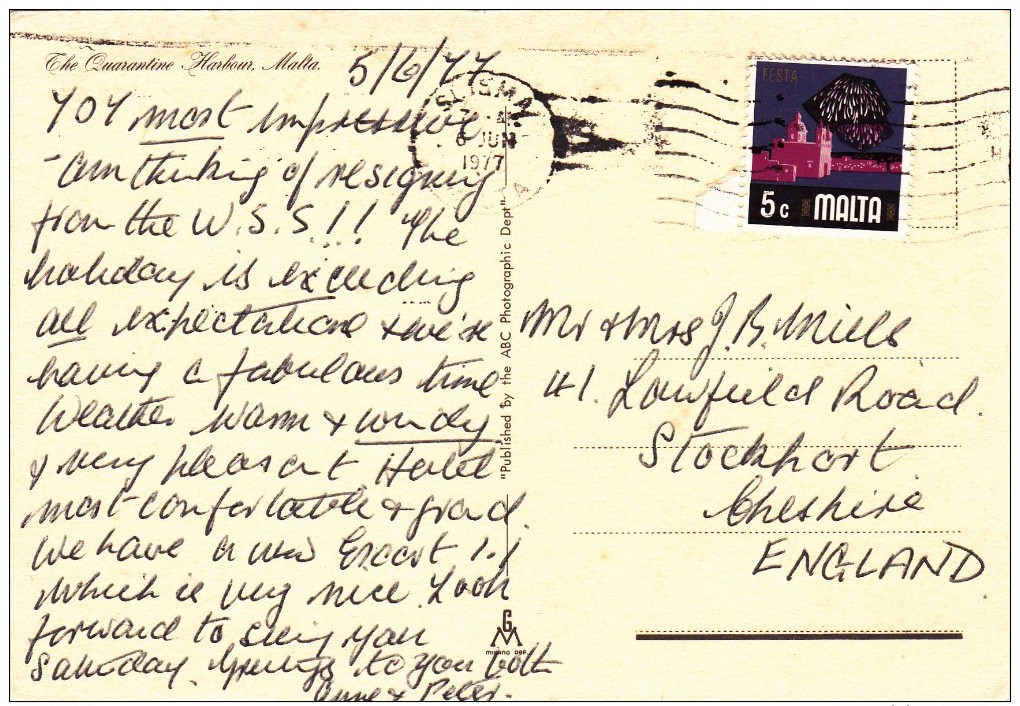 The Quarantine Harbour, Malta.
5/6/77
YOY most impressive
- am thinking of resigning
from the W.S.S!!! The
holiday is exceeding
all expectations & we're
having a fabulous time
Weather warm & windy,
& very pleasant Hotel
most comfortable & good.
We have a new Escort 1.1
which is very nice. Look
forward to seeing you
Saturday. Greetings to you both
Anne & Peter.
SLIEMA
6 JUN
1977
"Published by the ABC Photographic Dept"
G
M
MILANO DEP.
FESTA
5c MALTA
Mr & Mrs J. B. Mills
41. Lowfield Road.
Stockport
Cheshire
ENGLAND